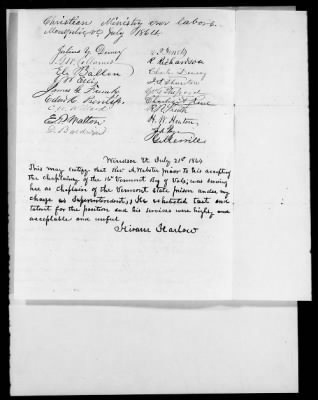 Christian Ministry ever labors.
Montpelier Vt July 1864
Julius Y Dewey
R Richardson
Eli Ballou
Charles Dewey
J W Ellis
J A Thurston
James G French
E P Walton
H. W. Heaton
D. Baldwin
Windsor Vt July 21st 1864
This may certify that Rev A Webster prior to his accepting
the chaplaincy of the 16 Vermont Reg of Vols; was serving
here as Chaplain of the Vermont State prison under my
charge as Superintendent; He exhibited tact and
talent for the position and his services were highly
acceptable and useful
Hiram Harlow